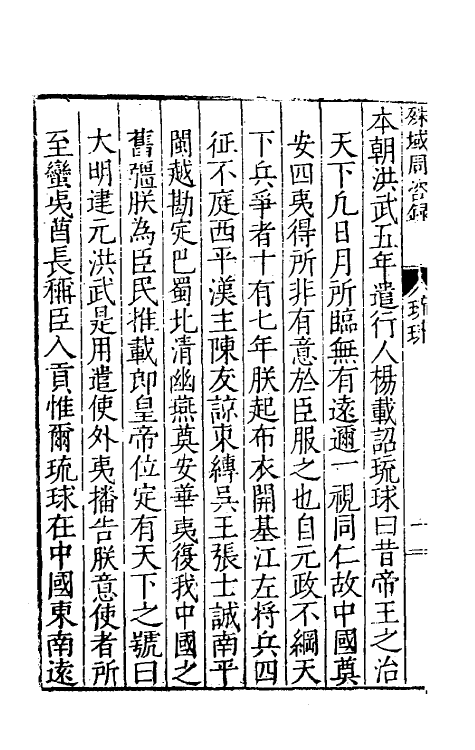 殊域周咨錄
琉球
本朝洪武五年遣行人楊載詔琉球曰昔帝王之治
天下凢日月所臨無有遠邇一視同仁故中國奠
安四夷得所非有意於臣服之也自元政不綱天
下兵爭者十有七年朕起布衣開基江左將兵四
征不庭西平漢主陳友諒東縛吳王張士誠南平
閩越勘定巴蜀北清幽燕奠安華夷復我中國之
舊彊朕為臣民推載郎皇帝位定有天下之號曰
大明建元洪武是用遣使外夷播告朕意使者所
至蠻夷酋長稱臣入貢惟爾琉球在中國東南遠